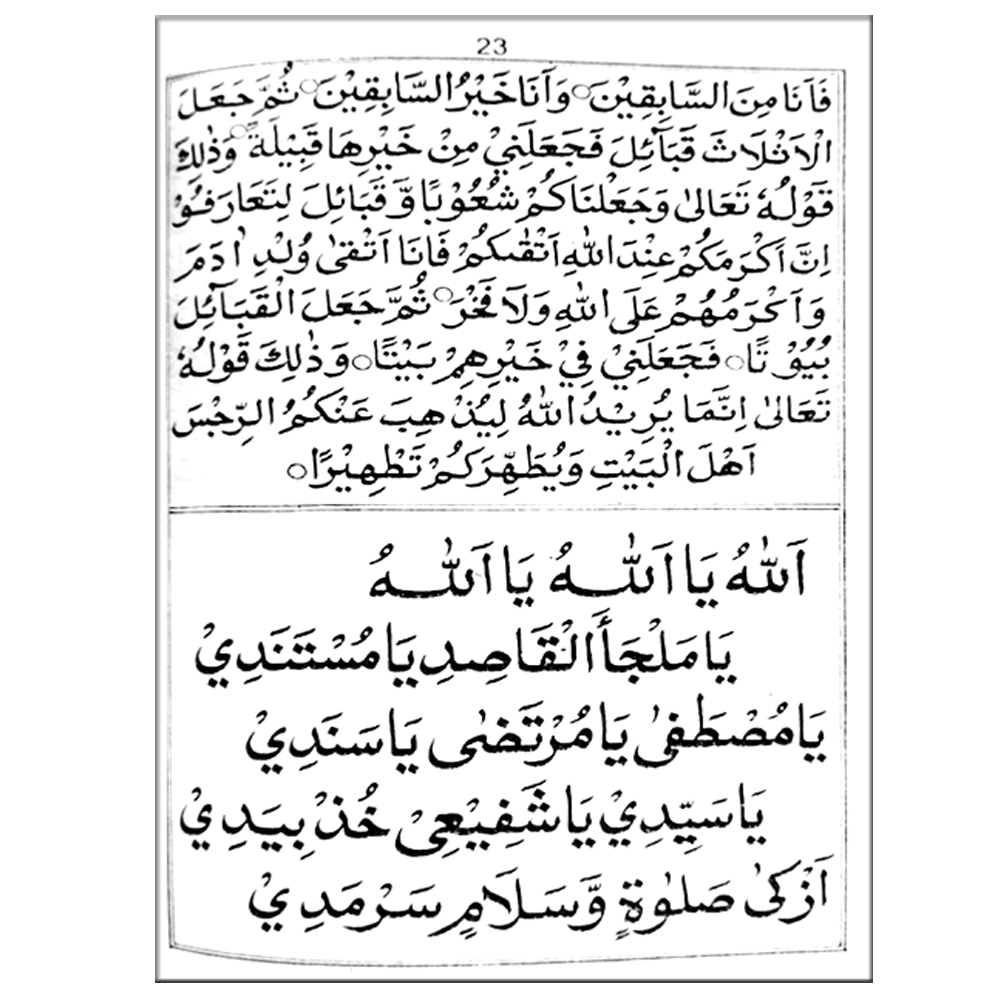 23
فَاَنَا مِنَ السَّابِقِيْنَ○ وَاَنَا خَيْرُ السَّابِقِيْنَ○ ثُمَّ جَعَلَ
الْاَثْلَاثَ قَبَآئِلَ فَجَعَلَنِيْ مِنْ خَيْرِهَا قَبِيْلَةً○ وَذٰلِكَ
قَوْلُهٗ تَعَالىٰ وَجَعَلْنَاكُمْ شُعُوْبًا وَّ قَبَائِلَ لِتَعَارَفُوْ
اِنَّ اَكْرَمَكُمْ عِنْدَ اللّٰهِ اَتْقٰىكُمْ فَاَنَا اَتْقىٰ وُلْدِ اٰدَمَ
وَاَكْرَمُهُمْ عَلَى اللّٰهِ وَلَا فَخْرَ○ ثُمَّ جَعَلَ الْقَبَآئِلَ
بُيُوْتًا○ فَجَعَلَنِيْ فِيْ خَيْرِهِمْ بَيْتًا○ وَذٰلِكَ قَوْلُهٗ
تَعَالىٰ اِنَّمَا يُرِيْدُ اللّٰهُ لِيُذْهِبَ عَنْكُمُ الرِّجْسَ
اَهْلَ الْبَيْتِ وَيُطَهِّرَكُمْ تَطْهِيْرًا○
اَللّٰهُ يَا اَللّٰهُ يَا اَللّٰهُ
يَا مَلْجَأَ الْقَاصِدِ يَا مُسْتَنَدِيْ
يَا مُصْطَفىٰ يَا مُرْتَضٰى يَا سَنَدِيْ
يَا سَيِّدِيْ يَا شَفِيْعِىْ خُذْ بِيَدِيْ
اَزْكىٰ صَلٰوةٍ وَّسَلَامٍ سَرْمَدِيْ